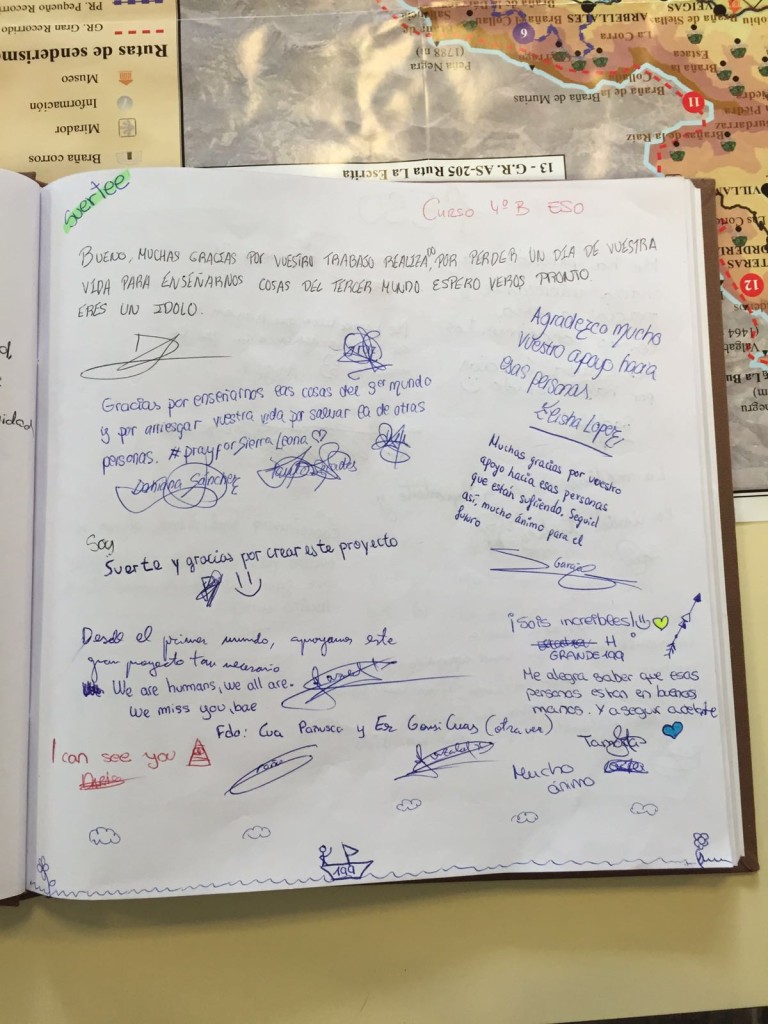 PR. Pequeño Recorri
GR. Gran Recorrido
Rutas de senderismo
Museo
Información
Mirador
Braña corros
6
Peña Negra
(1788 m)
Braña de Murias
11
ARBELLALES
VEIGAS
La Corra
Braña de la
Braña de la Raíz
12
13 - G.R. AS-205 Ruta La Escrita
suertee
Curso 4º B ESO
BUENO, MUCHAS GRACIAS POR VUESTRO TRABAJO REALIZADO, POR PERDER UN DIA DE VUESTRA
VIDA PARA ENSEÑARNOS COSAS DEL TERCER MUNDO. ESPERO VEROS PRONTO.
ERES UN IDOLO.
Agradezco mucho
vuestro apoyo hacia
esas personas.
Keisha López
Gracias por enseñarnos las cosas del 3er mundo
y por arriesgar vuestra vida por salvar la de otras
personas. #prayforSierraLeona ♡
Damiana Sánchez
Muchas gracias por vuestro
apoyo hacia esas personas
que están sufriendo. Seguid
así, mucho ánimo para el
futuro
García
Soy
Suerte y gracias por crear este proyecto
Desde el primer mundo, apoyamos este
gran proyecto tan necesario
We are humans, we all are.
We miss you, bae
¡Sois increíbles!
H
GRANDE 199
Me alegra saber que esas
personas estan en buenas
manos. Y a seguir adelante
Fdo: (otra vez)
I can see you
Mucho
ánimo
199